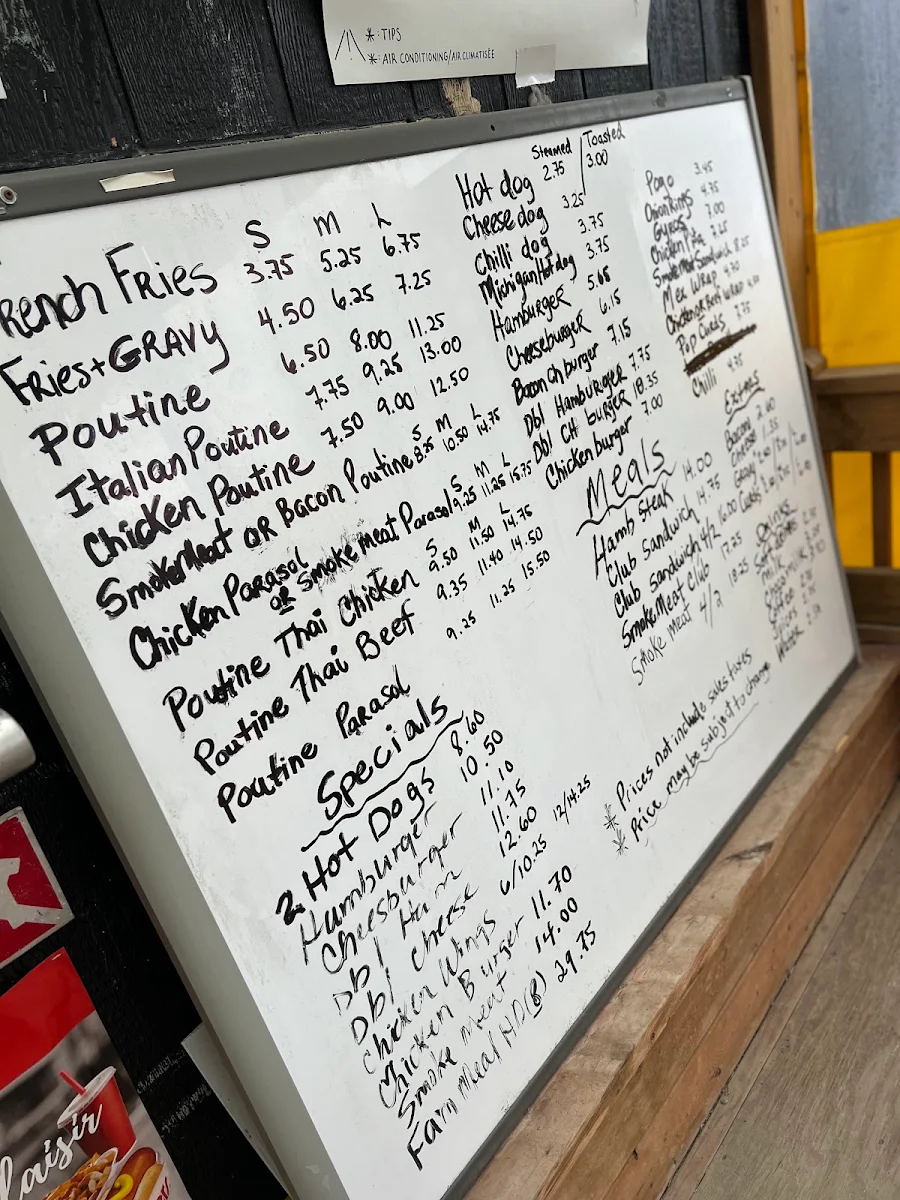 *: TIPS
*: AIR CONDITIONING/AIR CLIMATISÉE
S M L
RENCH FRIES 3.75 5.25 6.75
FRIES+GRAVY 4.50 6.25 7.25
Poutine 6.50 8.00 11.25
Italian Poutine 7.75 9.25 13.00
Chicken Poutine 7.50 9.00 12.50
S M L
Smoke Meat OR Bacon Poutine 8.75 10.50 14.75
S M L
Chicken Parasol
OR Smoke meat Parasol 9.25 11.25 15.75
S M L
Poutine Thai Chicken 9.50 11.50 14.75
Poutine Thai Beef 9.35 11.40 14.50
Poutine Parasol 9.25 11.25 15.50
Specials
2 Hot Dogs 8.60
Hamburger 10.50
Cheesburger 11.10
Dbl Ham 11.75
Dbl cheese 12.60
Chicken Wings 6/10.25 12/14.25
Chicken Burger 11.70
Smoke meat 14.00
Fam Meal HD(8) 29.75
Steamed / Toasted
Hot dog 2.75 / 3.00
Cheese dog 3.25
Chilli dog 3.75
Michigan Hot dog 3.75
Hamburger 5.65
Cheeseburger 6.15
Bacon ch burger 7.15
Dbl Hamburger 7.75
Dbl CH burger 8.35
Chicken burger 7.00
Meals
Hamb Steak 14.00
Club Sandwich 14.75
Club Sandwich 4/2 16.00
Smoke Meat Club 17.25
Smoke meat 4/2 18.25
Pogo 3.45
Onion Rings 4.75
Gyros 7.00
Chicken Pita 7.25
Smoke Meat Sandwich 8.25
Mex Wrap
Wrap
Pop 7.75
Chilli 4.75
Extras
Bacon 2.00
Cheese
Gravy
Curds
Drinks
Milk
Coffee
Juices
Water
* Prices not include sales taxes
* Price may be subject to change
laisir